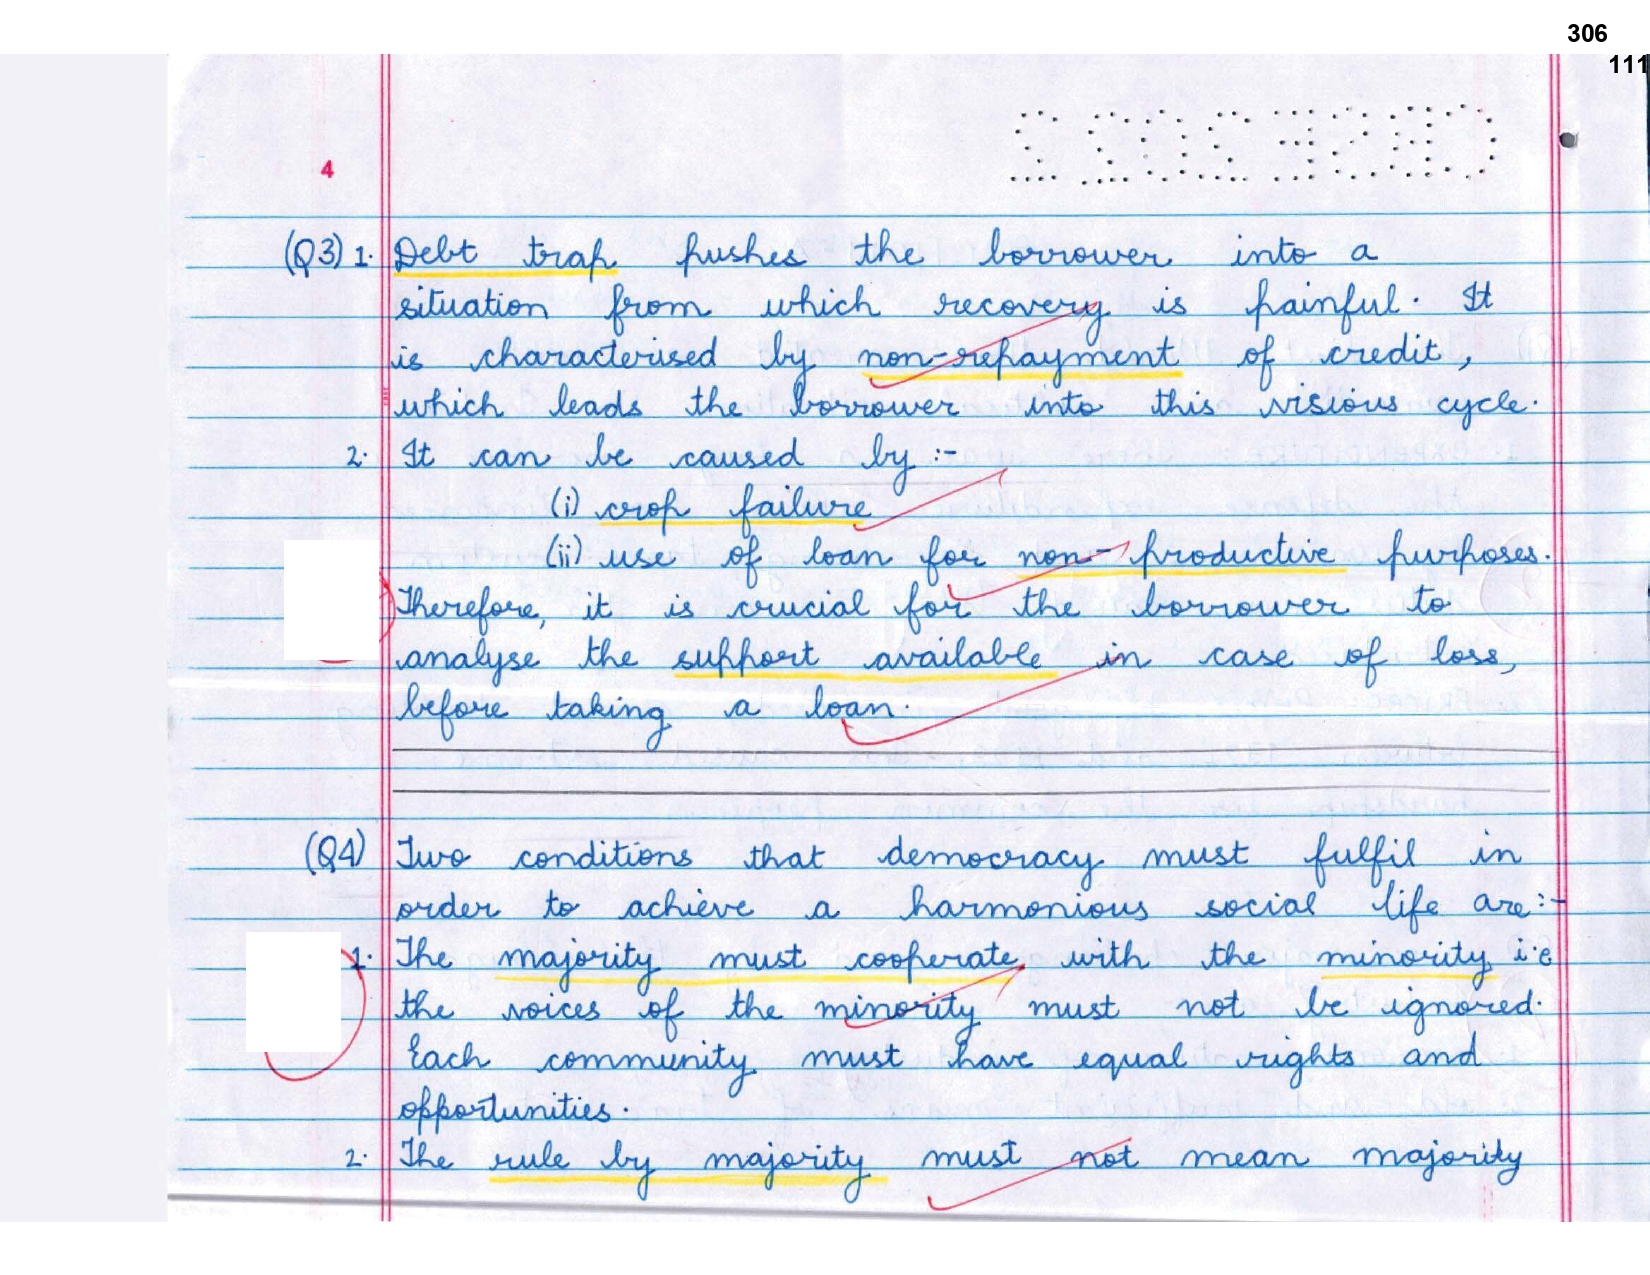 306
111
CBSE2022
4
(Q3) 1. Debt trap pushes the borrower into a
situation from which recovery is painful. It
is characterised by non-repayment of credit,
which leads the borrower into this visious cycle.
2. It can be caused by :-
(i) crop failure
(ii) use of loan for non-productive purposes.
Therefore, it is crucial for the borrower to
analyse the support available in case of loss,
before taking a loan.
(Q4) Two conditions that democracy must fulfil in
order to achieve a harmonious social life are:-
1. The majority must cooperate with the minority i.e
the voices of the minority must not be ignored.
Each community must have equal rights and
opportunities.
2. The rule by majority must not mean majority